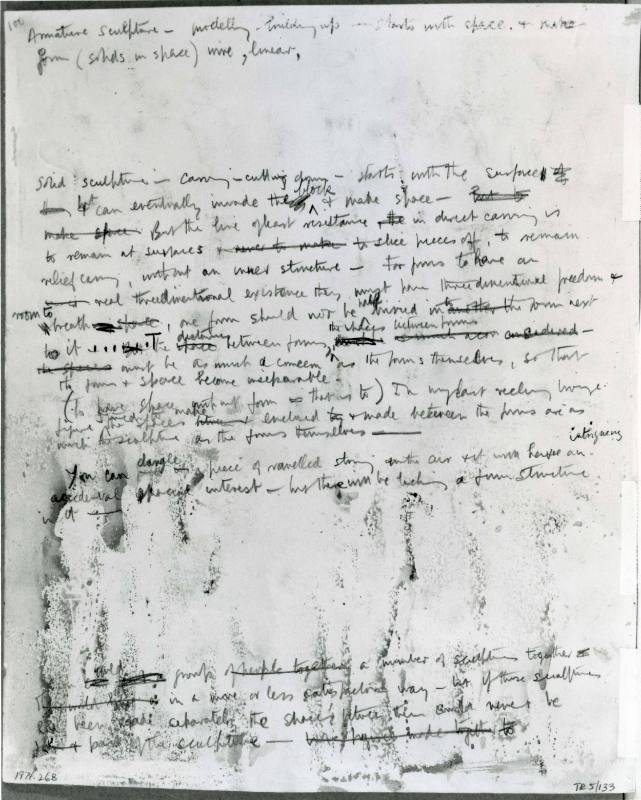 Armature Sculpture — modelling - building up — starts with space. & make
form (solids in space) wire, linear,
Solid sculpture — carving — cutting down — starts with the surface
& can eventually invade the block & make space — But to
make space. But the line of least resistance, in direct carving is
to remain at surfaces to slice pieces off, to remain
relief carving, without an inner structure — For forms to have an
real threedimentional existence they must have threedimentional freedom &
room to breath space, one form should not be half buried in another the form next
to it ..... The distances space between forms, the shapes between forms considered —
must be as much a concern as the forms themselves, so that
the forms & space become inseparable —
(to have space without form = that is to) In my last reclining image.
figure the spaces make & enclosed by & made between the forms are as
much the sculpture as the forms themselves —
You can dangle a piece of ravelled string in the air & it will have an intriguing
accidental spacial interest — but there will be lacking a form structure
in it —
group of people together a number of sculptures together
in a more or less satisfactory way — but if those sculptures
been made separately the shapes between them could never be
part of the sculpture —
1971.268
TE 5/133